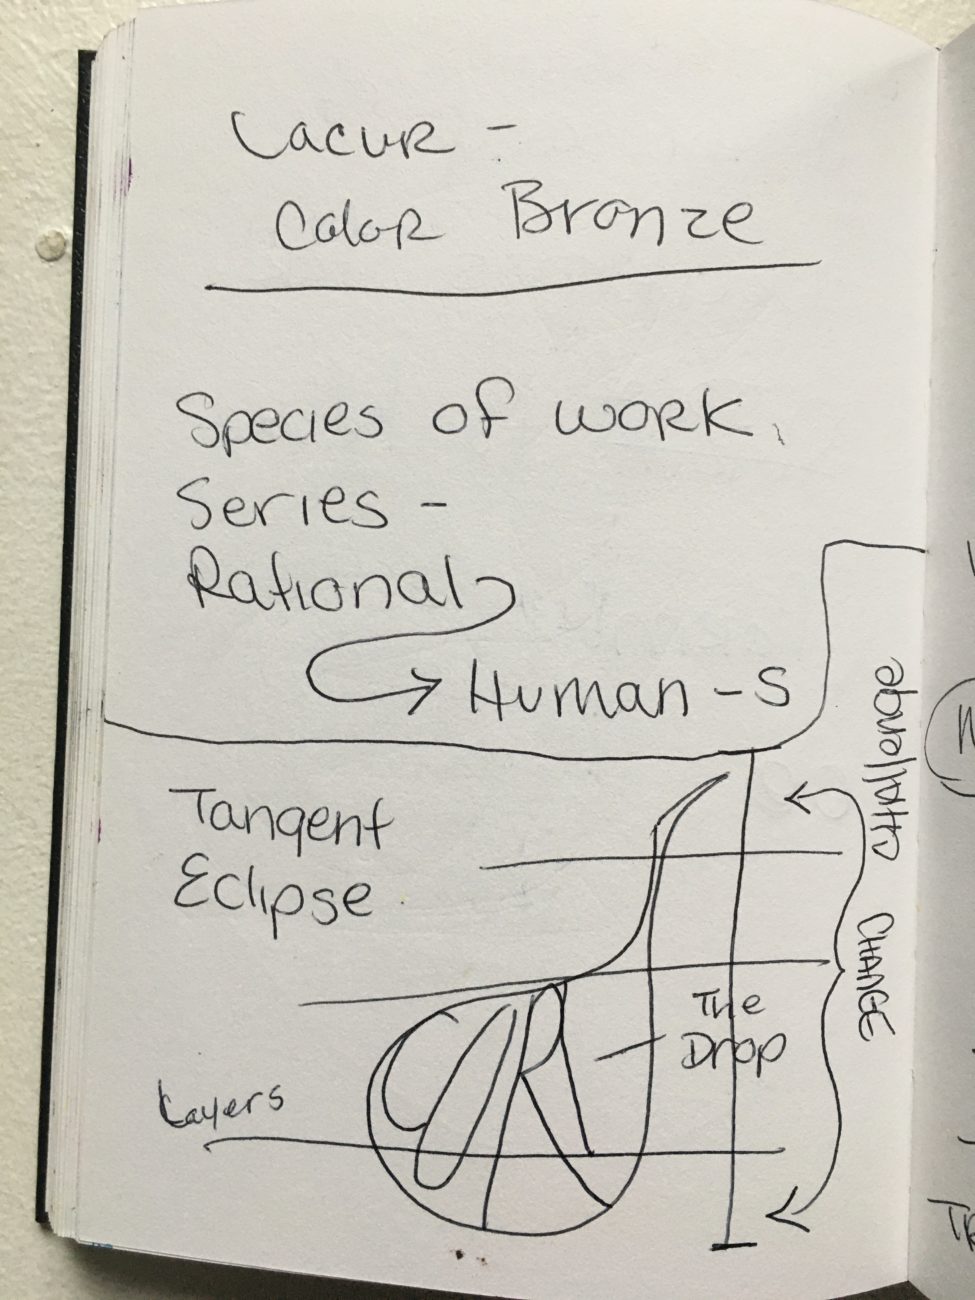 Lacur -
Color Bronze
Species of work.
Series -
Rational
Human - s
Tangent
Eclipse
CHAllenge
CHANGE
The
Drop
Layers